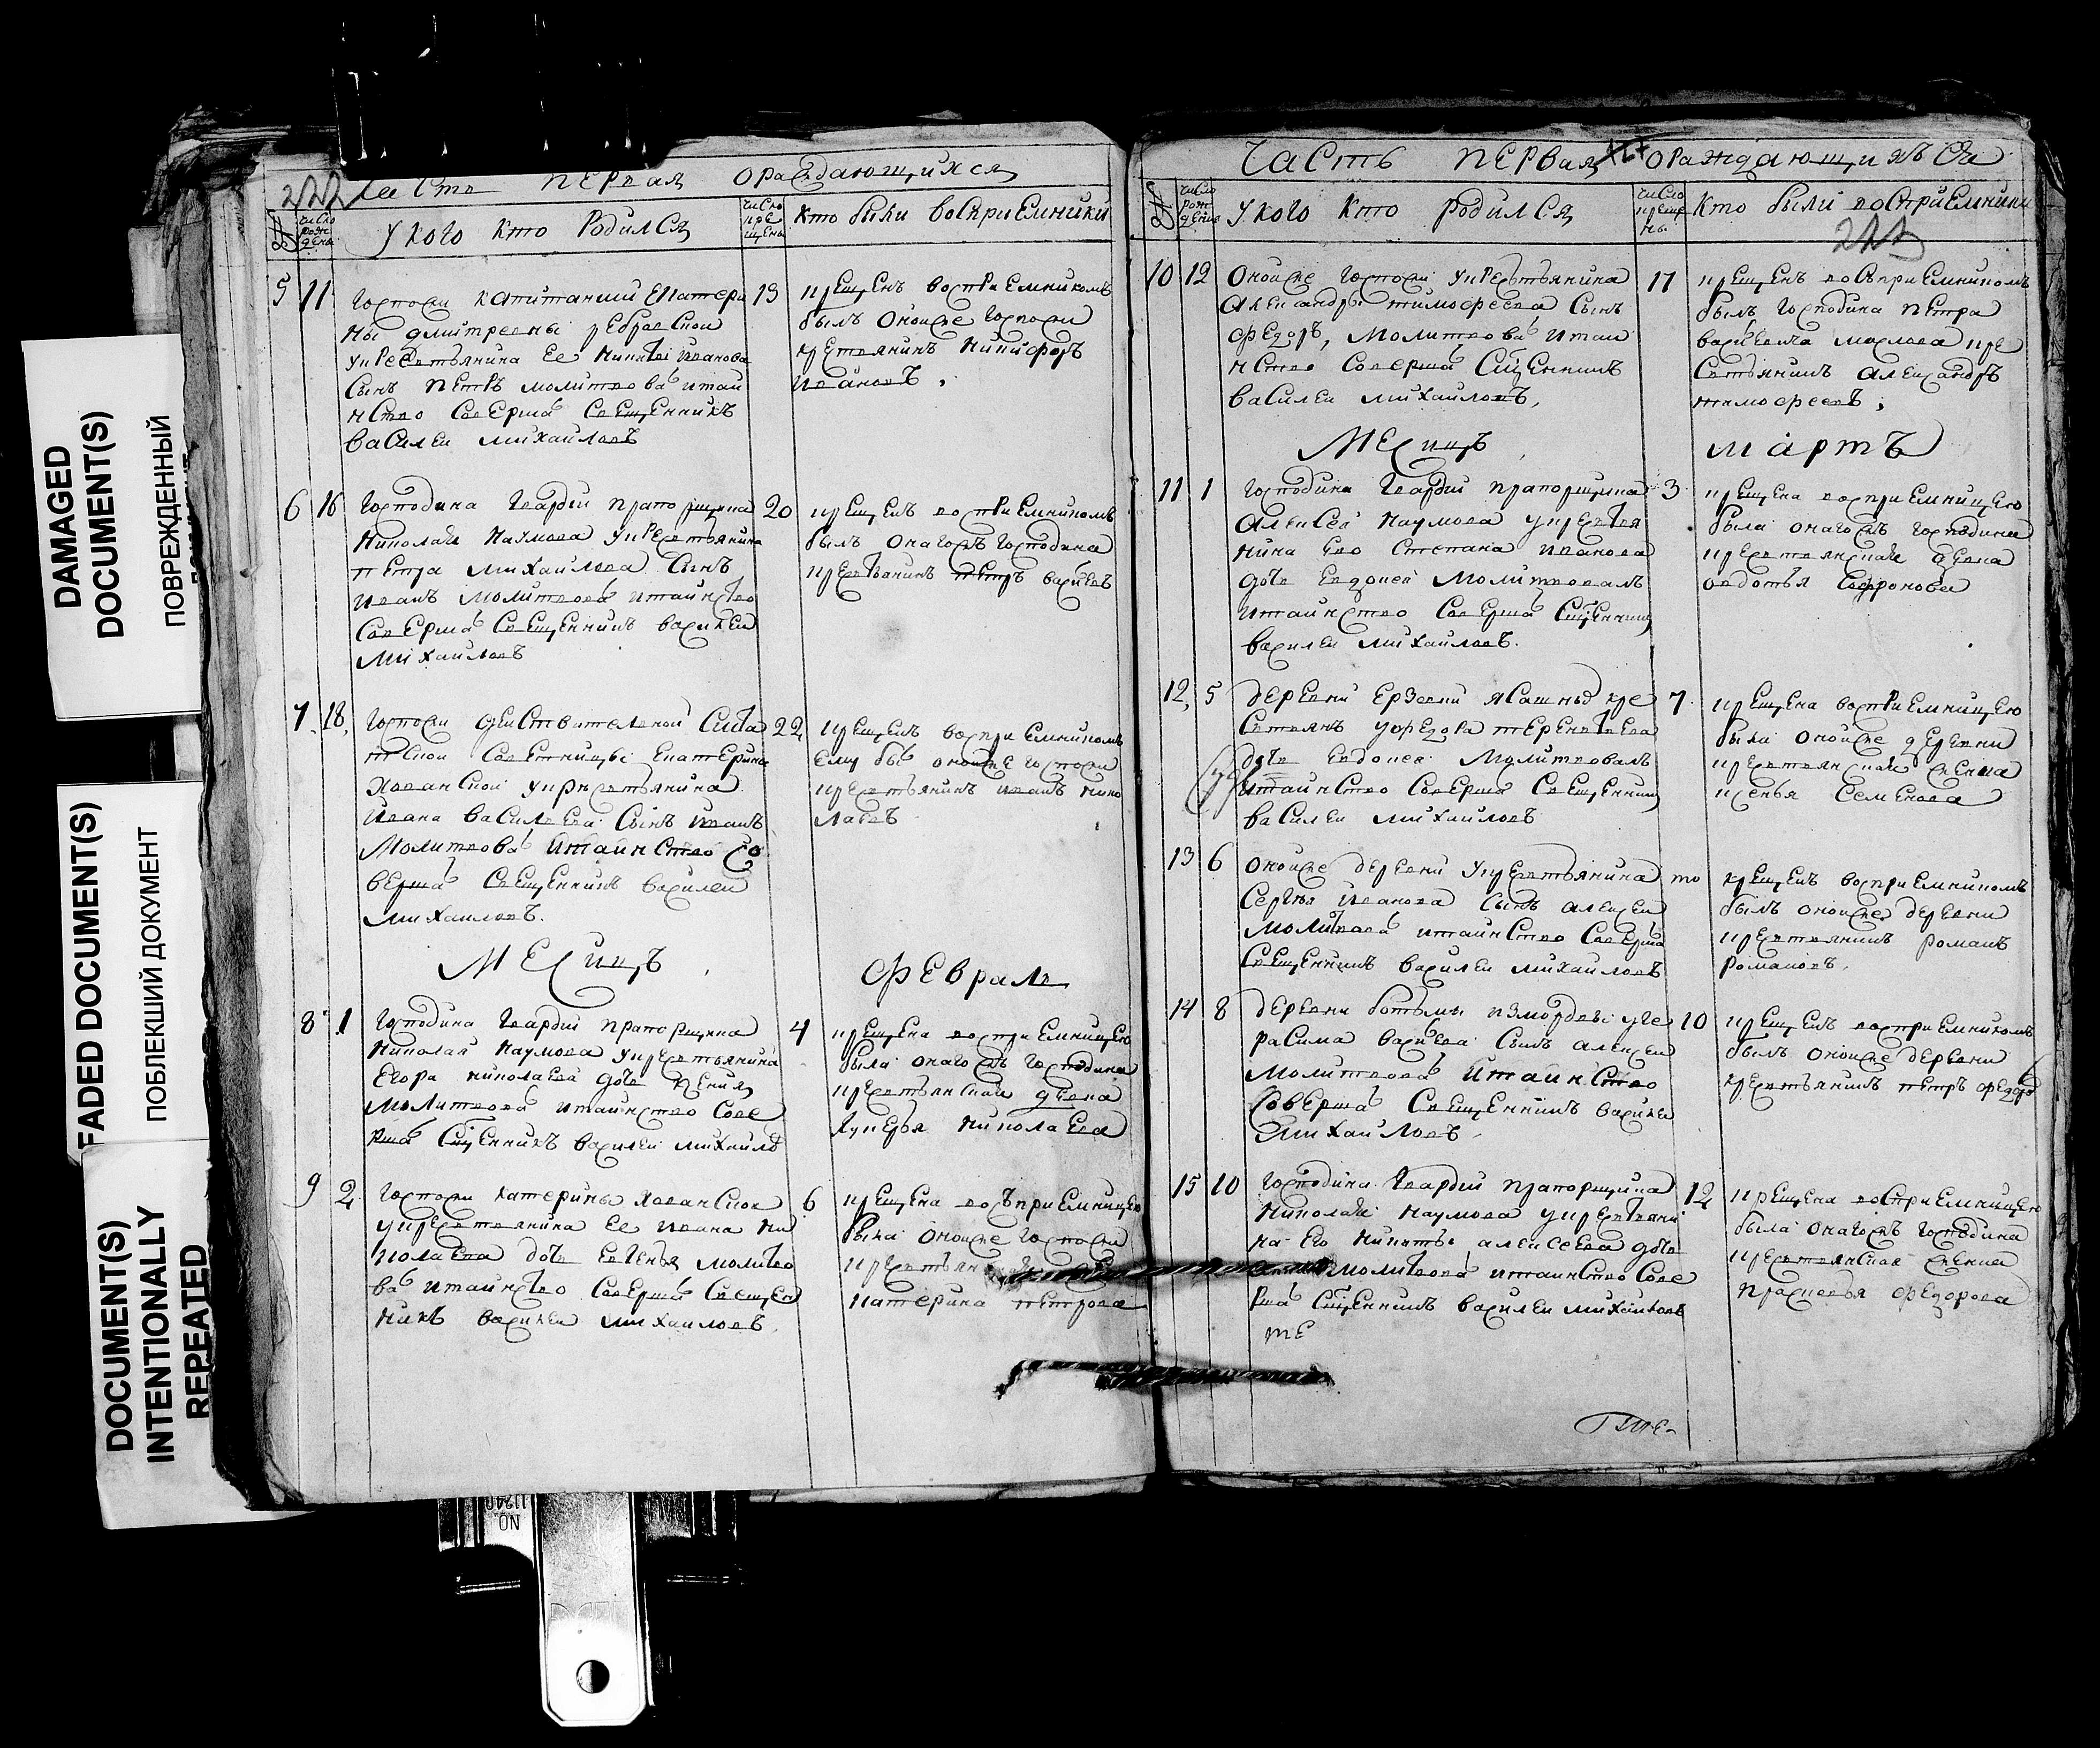 DAMAGED
DOCUMENT(S)
ПОВРЕЖДЕННЫЙ
FADED DOCUMENT(S)
ПОБЛЕКШИЙ ДОКУМЕНТ
DOCUMENT(S)
INTENTIONALLY
REPEATED
Часть первая ораждающихся
число рож дена
у кого кто родился
число кре щена
кто были воспри Емники
5 11 13
Госпожи капитанши Екатери
ны дмитревны
укрестьянина Ее Никиты иванова
Сынъ Петръ молитвова итаи
нство соверша Священникъ
василеи михаиловъ
крещенъ воспри Емникомъ
былъ оноиже госпожи
крестьянинъ Никифоръ
ивановъ
6 16 20
Господина гвардии прапорщика
Николая Наумова укрестьянина
петра михаилова Сынъ
иванъ молитвова итаинство
соверша Священникъ василеи
михаиловъ
крещенъ воспри Емникомъ
былъ онагожъ господина
крестьянинъ петръ василевъ
7 18 22
госпожи деиствителнои Стат
скои советницы Екатерина
Хованскои укрестьянина
ивана василева Сынъ иванъ
молитвова итаинство со
верша Священникъ василеи
михаиловъ
крещенъ воспри Емникомъ
Ему бы оноиже госпожи
крестьянинъ иванъ нико
лаевъ
месицъ Февраль
8 1 4
Господина гвардии прапорщика
Николая Наумова укрестьянина
Егора николаева дочь ксения
молитвова итаинство сове
рша Сщенникъ василеи михаило
крещена воспри Емницею
была онагожъ господина
крестьянская девка
лукерья николаева
9 2 6
госпожи катерины хованскои
укрестьянина Ее ивана ни
колаева дочь Евгенья молитво
ва итаинство соверша Свещен
никъ василеи михаиловъ
крещена восъпри Емницею
была оноиже госпожи
катерина петрова
Часть первая ораждающихъся
число рож дения
у кого кто родился
число креще ны
кто были воспри Емники
10 12 17
оноиже госпожи укрестьянина
Александры тимофеева Сынъ
федоръ, молитвова итаи
нство соверша Сщенникъ
василеи михаиловъ
крещенъ восъпри Емникомъ
былъ господина петра
василича маслова кре
стьянинъ александръ
тимофеевъ
месицъ мартъ
11 1 3
господина гвардии прапорщика
Алексея Наумова укрестья
нина Ево Степана иванова
дочь Евдокея молитвовалъ
итаинство соверша Сщенникъ
василеи михаиловъ
крещена воспри Емницею
была онагожъ господина
крестьянская девка
овдотья Софронова
12 5 7
деревни Ерзовки ясашныхъ кре
стьянъ уфедора терентьева
дочь Евдокея молитвовалъ
итаинство соверша Священникъ
василеи михаиловъ
крещена воспри Емницею
была оноиже деревни
крестьянская женка
ксенья Семенова
13 6 то
оноиже деревни укрестьянина
Сергея иванова сынъ алексеи
молитвова итаинство соверша
Священникъ василеи михаиловъ
крещенъ воспри Емникомъ
былъ оноиже деревни
крестьянинъ романъ
романовъ
14 8 10
деревни ботьмы измордвы уге
расима василева Сынъ алексеи
молитвова итаинство
соверша Священникъ василеи
михаиловъ
крещенъ воспри Емникомъ
былъ оноиже деревни
крестьянинъ петръ федоров
15 10 12
господина гвардии прапорщика
Николая Наумова укрестьяни
на Его Никиты алексеева дочь
молитвова итаинство сове
рша Сщенникъ василеи михаиловъ
те
крещена воспри Емницею
была онагожъ господина
крестьянская женка
прасковья федорова